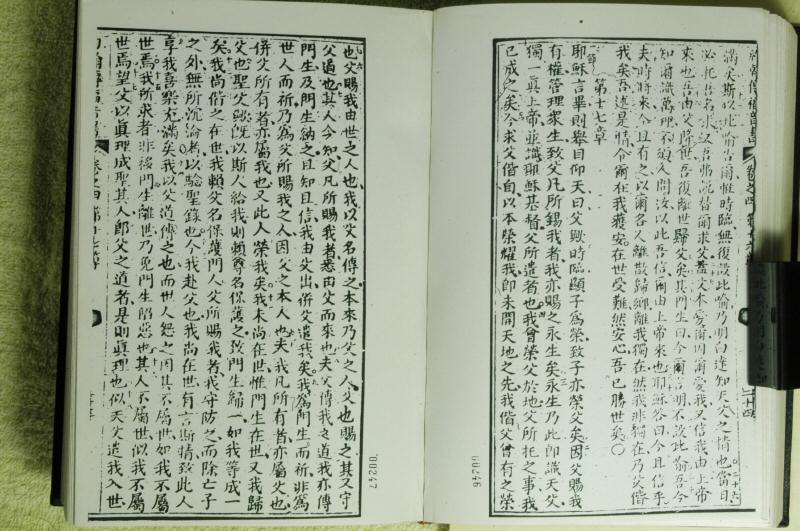 滿矣斯以比喻言爾惟時臨無復設此喻乃明白達知天父之情也當日
必托吾名求 吾弗說替爾求父蓋父本愛爾因爾愛我又信我由上帝
來也吾由父降世吾復離世歸父矣其門生曰今爾言明不設此喻吾今
知爾識萬理不須人問汝以此吾信爾由上帝來也耶穌答曰今且信乎
夫時將來今且有之以爾各人離散歸鄉離我獨在然我非獨在乃父偕
我矣吾述是情令爾在我獲安在世受難然安心吾已勝世矣〇
第十七章
耶穌言畢則舉目仰天曰父歟時臨顯子為榮致子亦榮父矣因父賜我
有權管理衆生致父凡所錫我者我亦賜之永生矣永生乃此即識天父
獨一眞上帝並識耶穌基督父所遣者也我會榮父於地父所托之事我
已成之矣今求父偕自以本榮耀我即未開天地之先我偕父曾有之榮
二十四
00246
也父賜我由世之人也我以父名傳之本來乃父之人父也賜之其又守
父道也其人今知父凡所賜我者悉由父而來也夫父傳我之道我亦傳
門生及門生納之且知且信我由父出併父遣我矣我為門生而祈非為
世人而祈乃為父所賜我之人因父之本人也夫我凡所有者亦屬父也
併父所有者亦屬我也又此人榮我矣我未尚在世惟門生在世又我歸
父也聖父歟旣以斯人給我則賴尊名保護之致門生歸一如我等成一
矣我尚偕之在世我賴父名保護門人父所賜我者我守防之而除亡子
之外無所沉淪者以驗聖錄也今我赴父也我尚在世有言斯情致此人
享我喜樂充滿矣我以父道傳之也而世人怨之因其不屬世如我不屬
世焉我所求者非後門生離世乃免門生陷惡也其人不屬世似我不屬
世焉望父以眞理成聖其人郎父之道者是則眞理也似天父遣我入世
00247